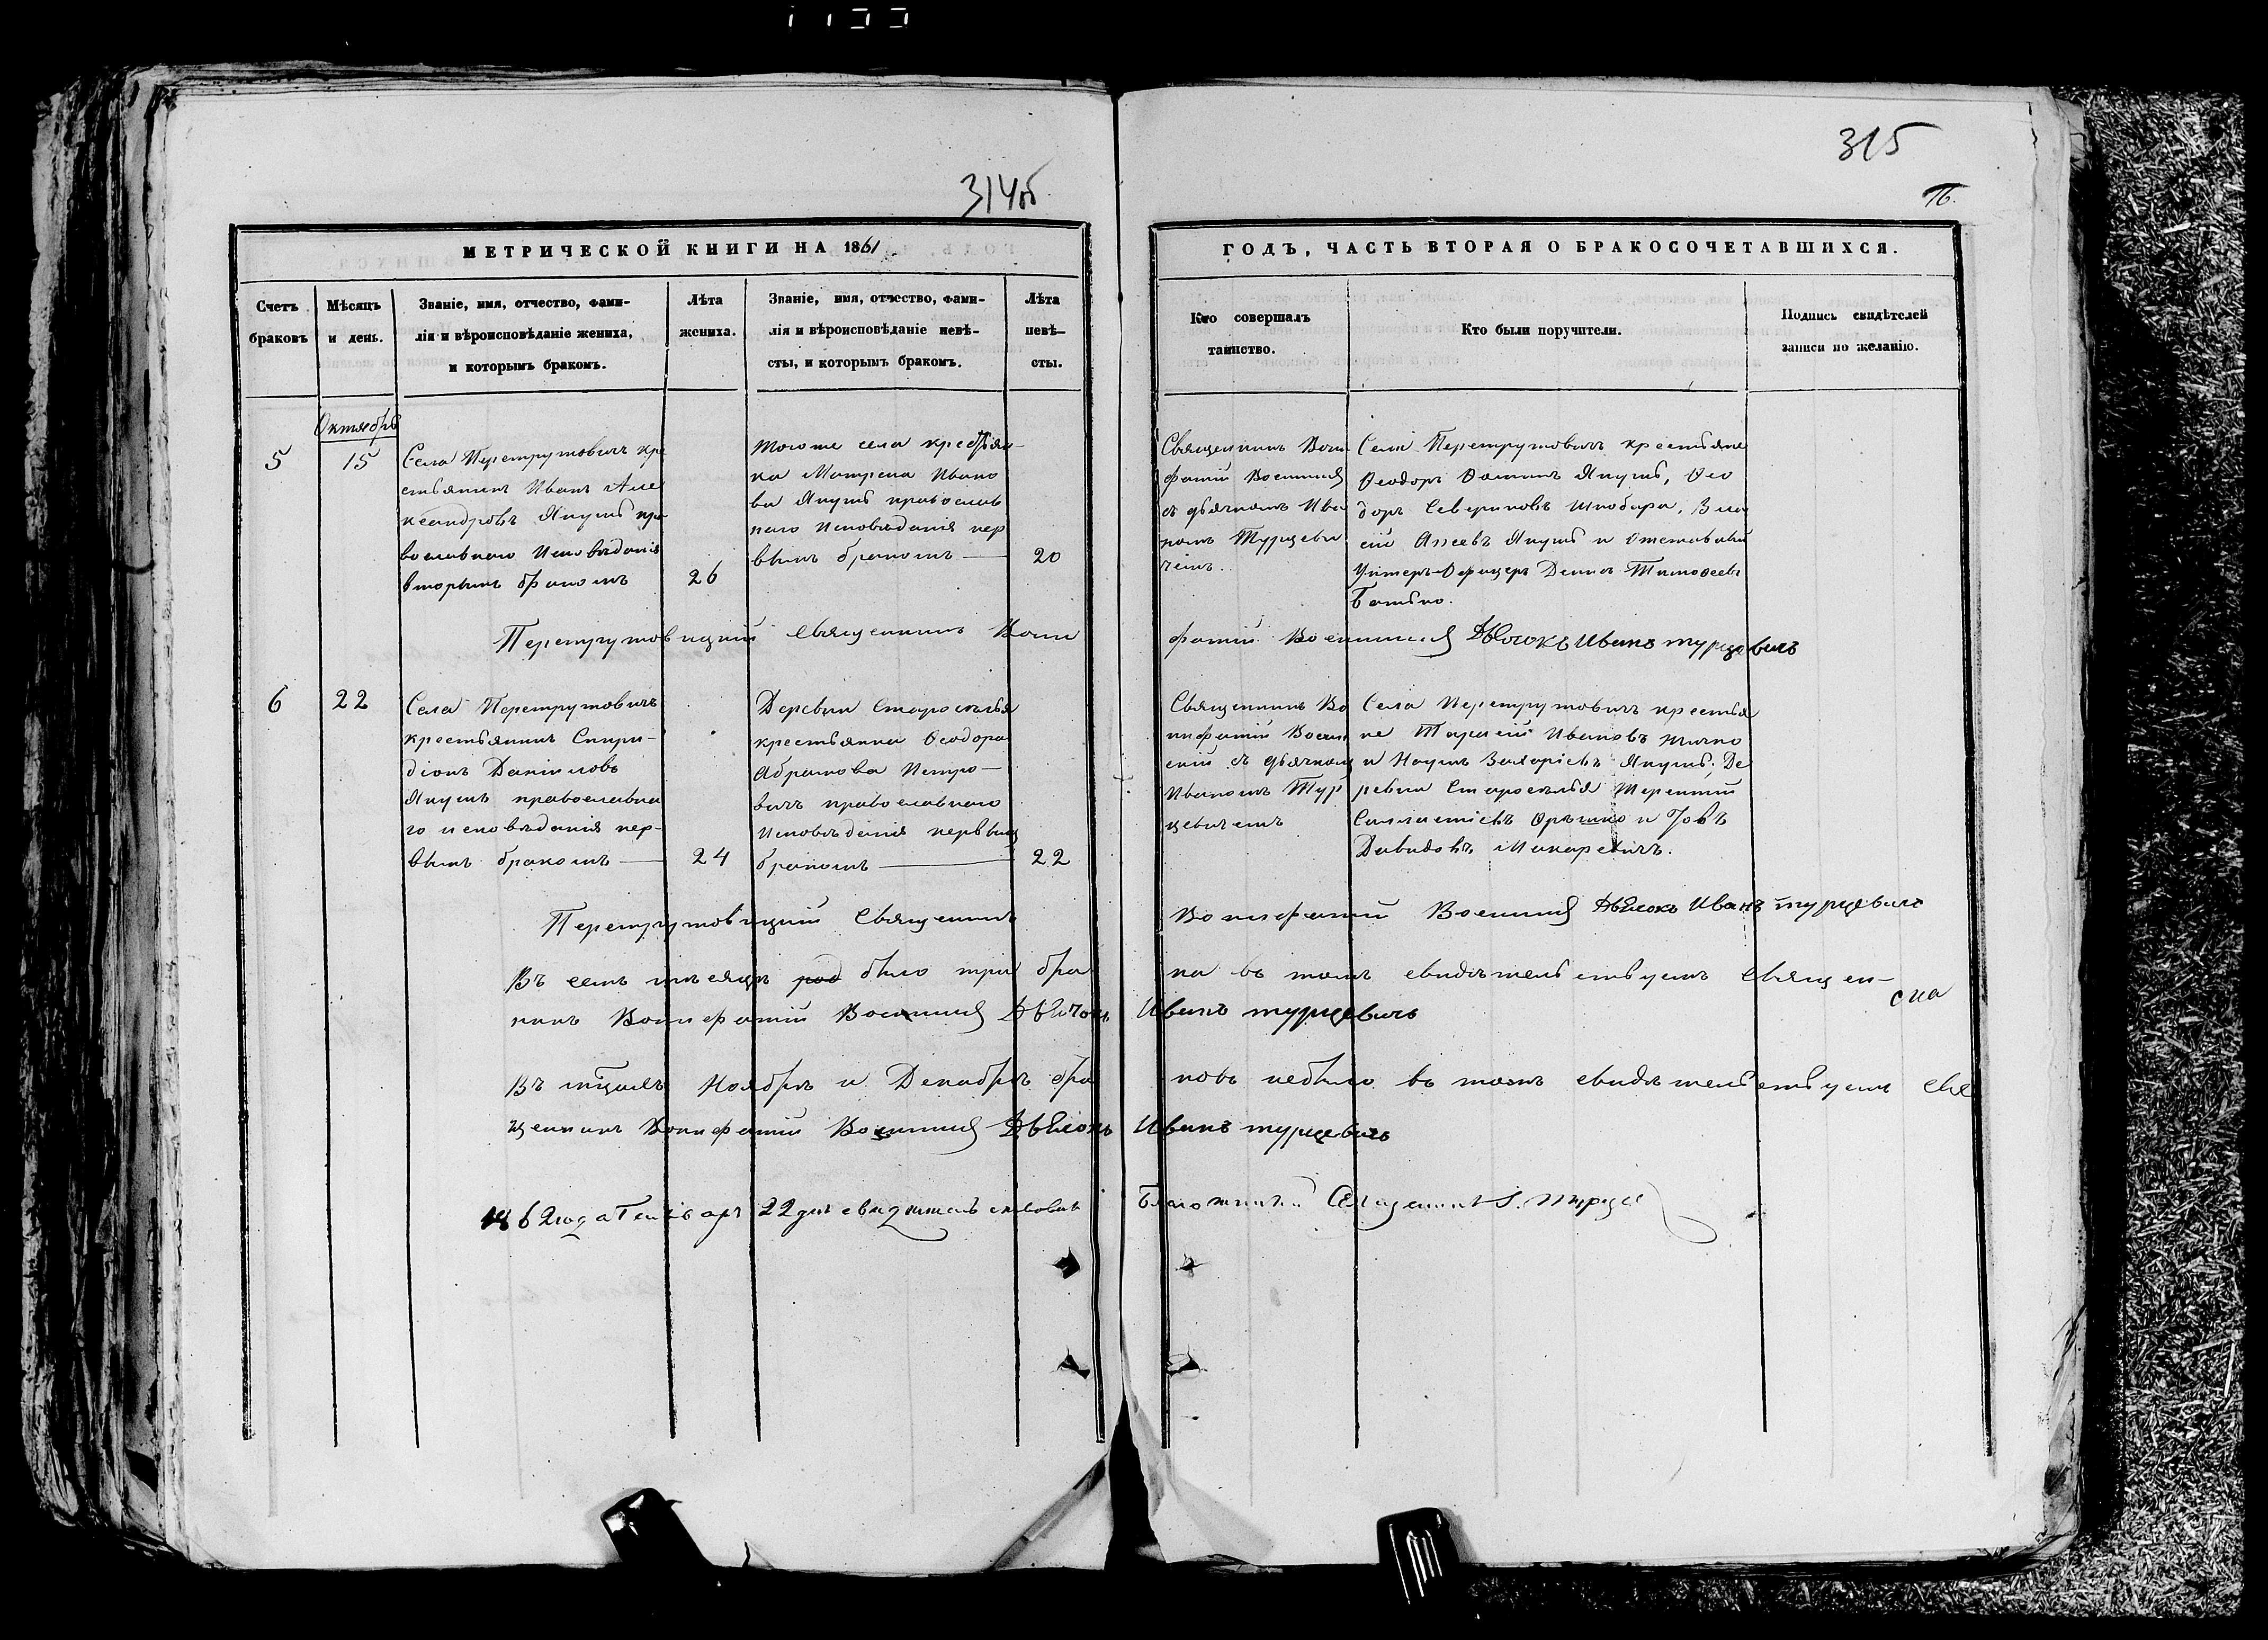 315
314об
16.
МЕТРИЧЕСКОЙ КНИГИ НА 1861
ГОДЪ, ЧАСТЬ ВТОРАЯ О БРАКОСОЧЕТАВШИХСЯ.
Счетъ
браковъ
Мѣсяцъ
и день.
Званіе, имя, отчество, фами-
лія и вѣроисповѣданіе жениха,
и которымъ бракомъ.
Лѣта
жениха.
Званіе, имя, отчество, фами-
лія и вѣроисповѣданіе невѣ-
сты, и которымъ бракомъ.
Лѣта
невѣ-
сты.
Кто совершалъ
таинство.
Кто были поручители.
Подпись свидѣтелей
записи по желанію.
Октябрь
5
15
Села Перетрутовичъ кре
стьянинъ Иванъ Але
ксандровъ Якушъ пра
вославнаго Исповѣданія
вторымъ бракомъ
26
тогоже села крестьян-
ка Матрена Ивано
ва Якушъ православ
наго Исповѣданія пер
вымъ бракомъ —
20
Священникъ Вони
фатій
съ дьячкомъ Ива
номъ Турцеви
чемъ.
Села Перетрутовичъ крестьяне
Ѳеодоръ Якушъ, Ѳео
доръ Севериновъ Шкабара, Вла
сій Якушъ и отставный
Унтеръ-Офицеръ Тимофеевъ
Перетрутовицкій Священникъ Вони
фатій Дьячокъ Иванъ турцевичъ
6
22
Села Перетрутовичъ
крестьянинъ Спири-
діонъ Даніиловъ
Якушъ православна
го исповѣданія пер-
вымъ бракомъ —
24
Деревни Староселья
крестьянка Ѳеодора
Абрамова Петро-
вичъ православнаго
Исповѣданія первымъ
бракомъ —
22
Священникъ Во
нифатій
съ дьячкомъ
Иваномъ Тур
цевичемъ
Села Перетрутовичъ крестья
не Тарасій Ивановъ
и Наумъ Захаріевъ Якушъ, Де
ревни Староселья Терентій
и Іовъ
Давидовъ Макаревичъ.
Перетрутовицкій Священникъ
Вонифатій Дьячокъ Иванъ турцевичъ
Въ семъ мѣсяцѣ было три бра
ка въ томъ свидѣтельствуетъ Священ-
никъ Вонифатій Дьячокъ Иванъ турцевичъ
Въ мѣсяцахъ Ноябрѣ и Декабрѣ бра
ковъ небыло въ томъ свидѣтельствуетъ Свя
щенникъ Вонифатій Дьячокъ Иванъ турцевичъ
1862 года Генваря 22 дня свидѣтельствовалъ
Благочинный Священникъ